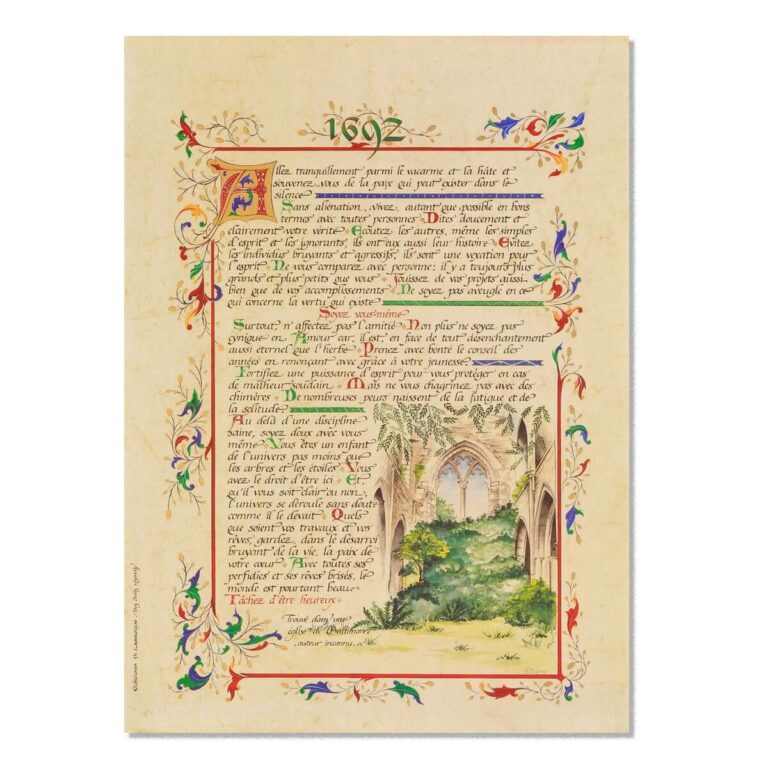 1692
Allez tranquillement parmi le vacarme et la hâte et
souvenez-vous de la paix qui peut exister dans le
silence
Sans aliénation, vivez, autant que possible en bons
termes avec toutes personnes Dites doucement et
clairement votre vérité Ecoutez les autres, même les simples
d'esprit et les ignorants, ils ont eux aussi leur histoire Evitez
les individus bruyants et agressifs, ils sont une vexation pour
l'esprit Ne vous comparez avec personne: il y a toujours plus
grands et plus petits que vous Jouissez de vos projets aussi
bien que de vos accomplissements Ne soyez pas aveugle en ce
qui concerne la vertu qui existe
Soyez vous-même
Surtout, n'affectez pas l'amitié Non plus ne soyez pas
cynique en Amour car, il est, en face de tout désenchantement
aussi éternel que l'herbe Prenez avec bonté le conseil des
années en renonçant avec grâce à votre jeunesse
Fortifiez une puissance d'esprit pour vous protéger en cas
de malheur soudain Mais ne vous chagrinez pas avec des
chimères De nombreuses peurs naissent de la fatigue et de
la solitude
Au delà d'une discipline
saine, soyez doux avec vous
même Vous êtes un enfant
de l'univers pas moins que
les arbres et les étoiles Vous
avez le droit d'être ici Et
qu'il vous soit clair ou non,
l'univers se déroule sans doute
comme il le devait Quels
que soient vos travaux et vos
rêves, gardez, dans le désarroi
bruyant de la vie, la paix de
votre cœur Avec toutes ses
perfidies et ses rêves brisés, le
monde est pourtant beau
Tâchez d'être heureux
Trouvé dans une
église de Baltimore
auteur inconnu